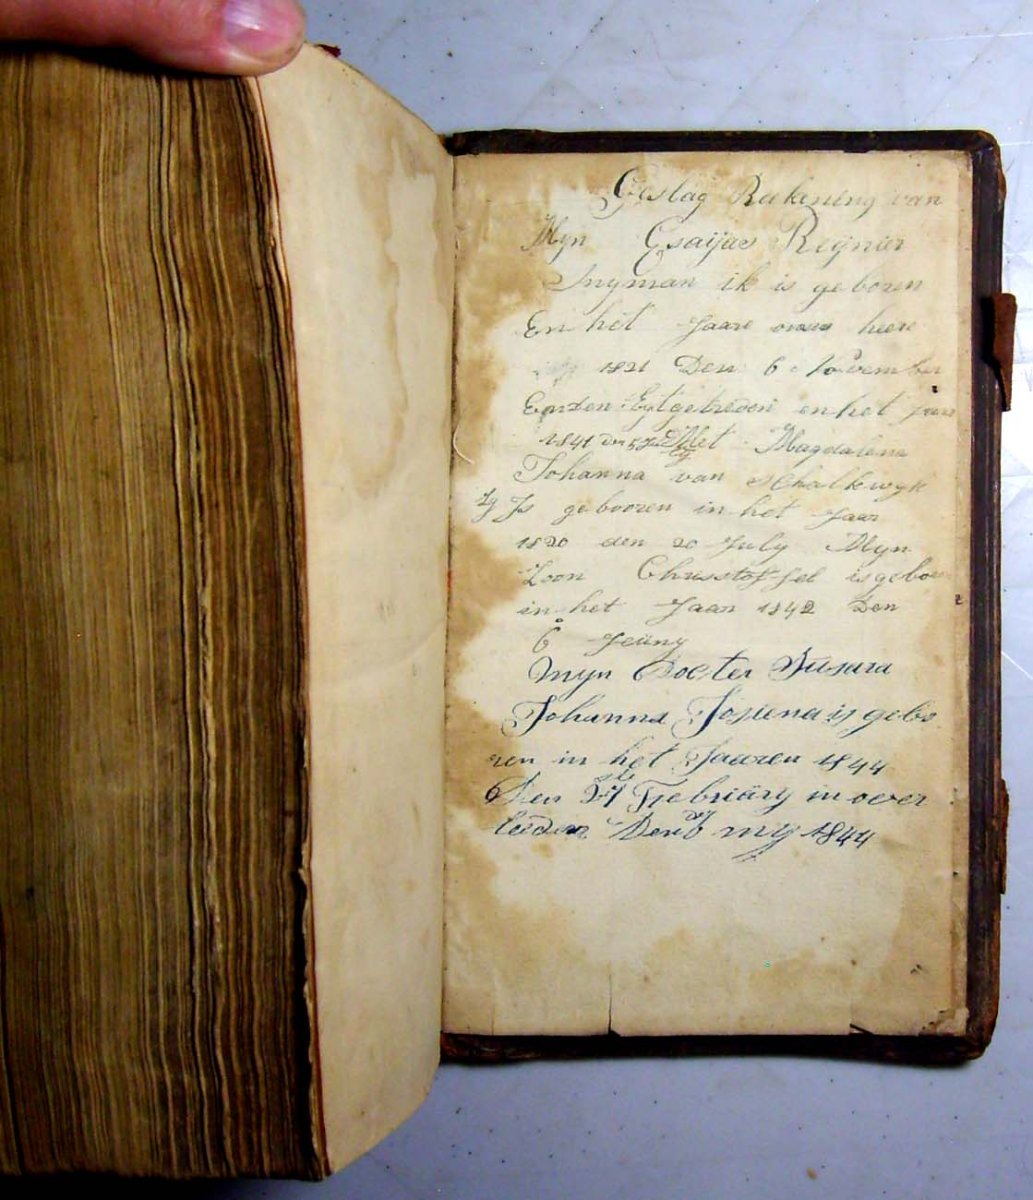 Geslag Reekening van
Myn Esaijas Reijnier
Snyman ik is geboren
En het Jaare onzes heere
1821 Den 6 November
En den Egt getreden en het jaar
1841 den Met Magdalena
Johanna van Schalkwyk
Zy Is gebooren in het Jaar
1820 den 20 July Myn
Zoon Christoffel is geboren
in het Jaar 1842 Den
6 Jeuny
Myn Docter Susara
Johanna Josiena is gebo
ren in het Jaaren 1844
Den Frebriary in over
leeden Den my 1844